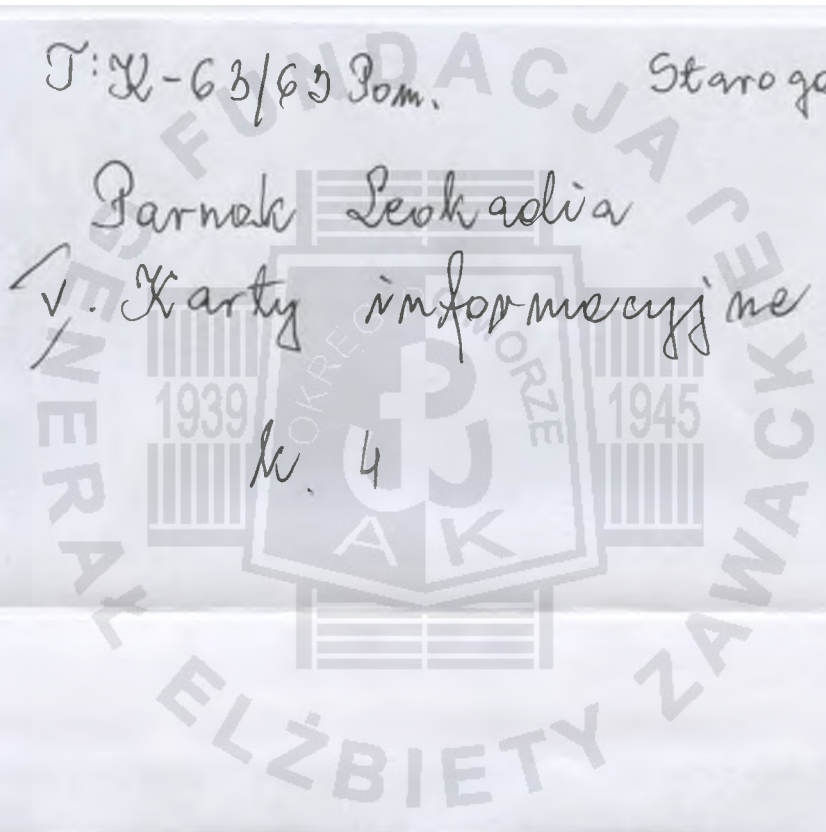 T: K-63/63 Pom. Staroga
Parnak Leokadia
V. Karty informacyjne
k. 4
FUNDACJA GENERAŁ ELŻBIETY ZAWACKIEJ
OKRĘG POMORZE
1939
1945
AK